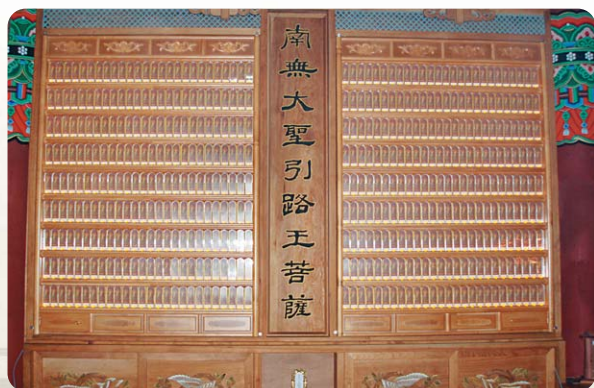 南無大聖引路王菩薩